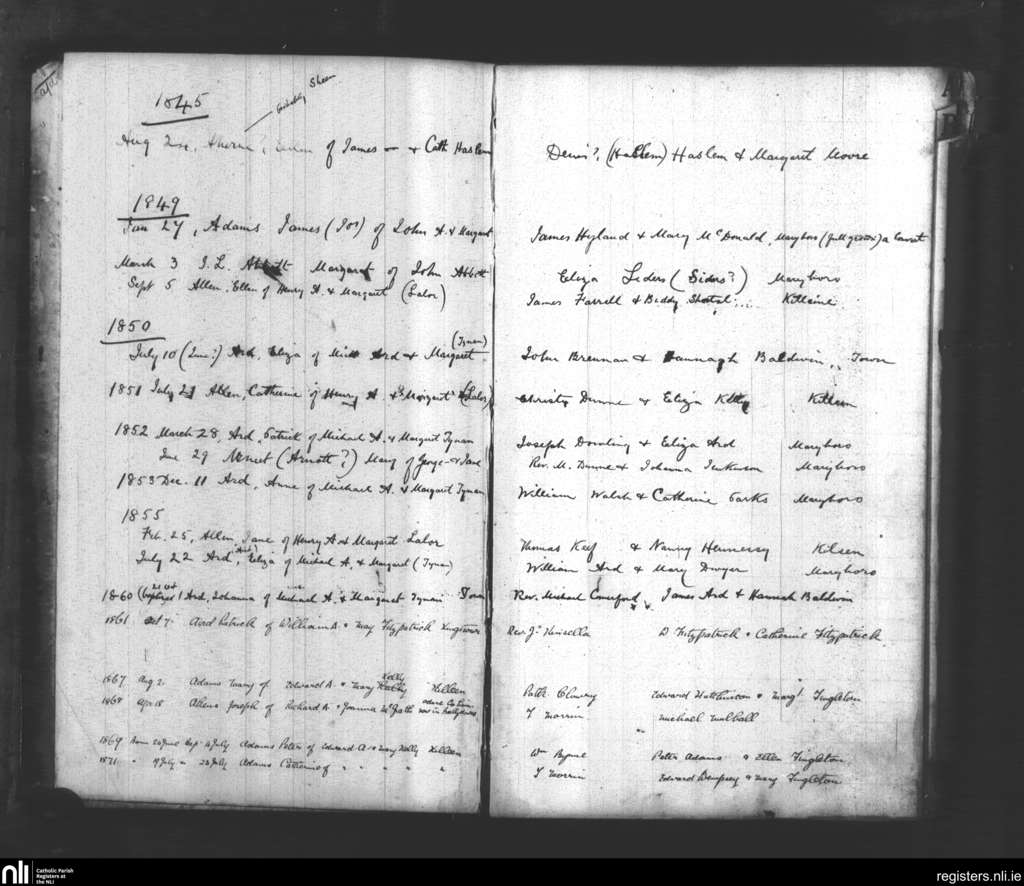 1845
probably Sheen
Aug of James — & Cath Haslem Denis?, (Haslem) Haslem & Margaret Moore
1849
Jan 27, Adams James (Jos) of John A. & Margaret James Hyland & Mary McDonald, Maryboro
March 3 Abbott Margaret of John Abbott Eliza Leders (Siders?) Maryboro
Sept 5 Allen, Ellen of Henry A. & Margaret (Lalor) James Farrell & Biddy
1850
(Tynan)
July 10 Ard, Eliza of Ard & Margaret John Brennan & Hannagh Baldwin, Town
1851 July 21 Allen, Catherine of Henry A. & Margaret (Lalor) Christy Dunne & Eliza Kelly Killeen
1852 March 28, Ard, Patrick of Michael A. & Margret Tynan Joseph Dowling & Eliza Ard Maryboro
29 (Arnott?) Mary of George & Jane Rev. M. Dunne & Johanna Jenkinson Maryboro
1853 Dec. 11 Ard, Anne of Michael A. & Margaret Tynan William Walsh & Catherine Parks Maryboro
1855
Feb. 25, Allen, Jane of Henry A & Margaret Lalor Thomas Keef & Nanny Hennessy Kileen
July 22 Ard, Eliza of Michael A. & Margaret (Tynan) William Ard & Mary Dwyer Maryboro
1860 Ard, Johanna of Michael A. & Margaret Tynan Town Rev. Michael Comerford, James Ard & Hannah Baldwin
1861 Oct 7 Aird Patrick of William A. & Mary Fitzpatrick D Fitzpatrick & Catherine Fitzpatrick
Kelly
1867 Aug 2. Adams Mary of Edward A. & Mary Killeen Edward Hutchinson & Margt Tingleton
1868 Apr 18 Athens Joseph of Richard A. & Joanna McGath T Morrin Michael Mulhall
1869 Born 20 June Bap 4 July Adams Peter of Edward A. & Mary Kelly Killeen Wm Byrne Peter Adams & Ellen Tingleton
1871 " 9 July " 23 July Adams Catherine of " " " " " T Morrin Edward Dempsey & Mary Tingleton
nli Catholic Parish
Registers at
the NLI
registers.nli.ie